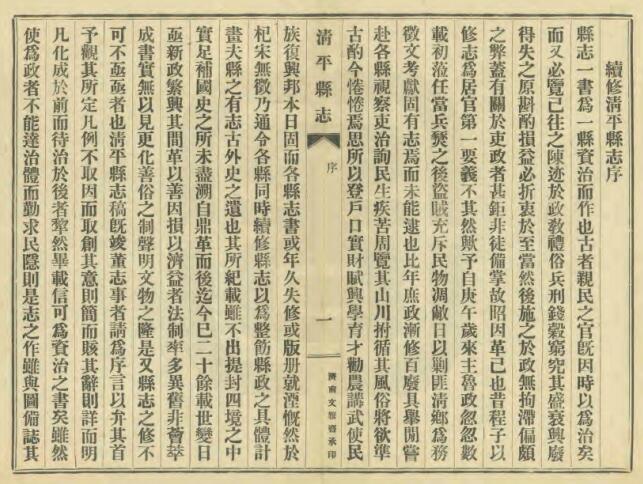 續修清平縣志序
縣志一書為一縣資治而作也古者親民之官既因時以為治矣
而又必覽已往之陳迹於政敎禮俗兵刑錢穀窮究其盛衰興廢
得失之原斟酌損益必折衷於至當然後施之於政無拘滯偏頗
之弊蓋有關於吏政者甚鉅非徒備掌故昭因革已也昔程子以
修志爲居官第一要義不其然歟予自庚午歲來主魯政忽忽數
載初蒞任當兵燹之後盜賊充斥民物凋敝日以剿匪清鄉爲務
徵文考獻固有志焉而未能逮也比年庶政漸修百廢具舉閒嘗
赴各縣視察吏治詢民生疾苦周覽其山川拊循其風俗將欲準
古酌今惓惓焉思所以登戶口實財賦興學育才勸農講武使民
清平縣志
序
一
濟南文雅齋承印
族復興邦本日固而各縣志書或年久失修或版册就湮慨然於
杞宋無徵乃通令各縣同時續修縣志以爲整飭縣政之具體計
畫夫縣之有志古外史之遺也其所紀載雖不出提封四境之中
實足補國史之所未盡溯自鼎革而後迄今已二十餘載世變日
亟新政繁興其間革以善因損以濟益者法制率多異舊非薈萃
成書實無以見更化善俗之制聲明文物之隆是又縣志之修不
可不亟亟者也清平縣志稿既竣董志事者請爲序言以弁其首
予觀其所定凡例不取因而取創其意則簡而賅其辭則詳而明
凡化成於前而待治於後者犖然畢載信可爲資治之書矣雖然
使爲政者不能達治體而勤求民隱則是志之作雖與圖備誌其